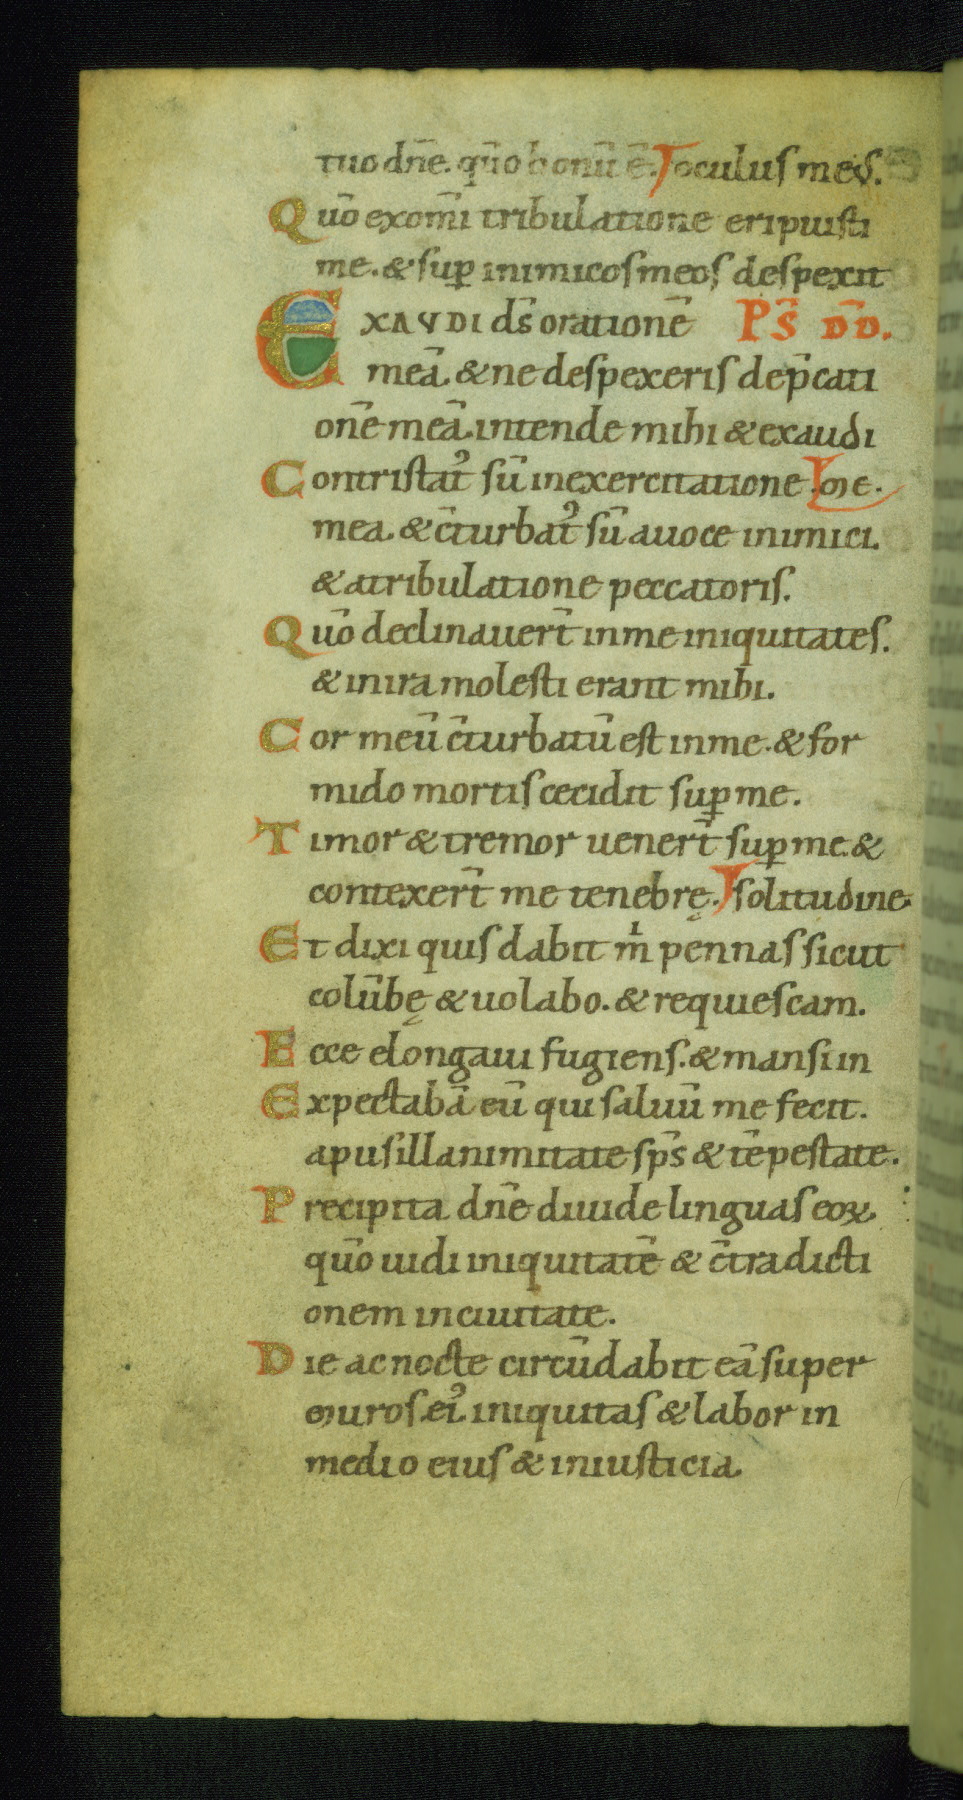 tuo dn̄e. qūo bonū ē. oculus meus.
Quō ex om̄i tribulatione eripuisti
me. & suꝑ inimicos meos despexit
EXAUDI d̄s orationē PS̄ DD̄.
meā. & ne despexeris dep̄cati
onē meā. intende mihi & exaudi
Contristatꝰ sū in exercitatione me.
mea. & c̄turbatꝰ sū a uoce inimici.
& a tribulatione peccatoris.
Quō declinauer̄t in me iniquitates.
& in ira molesti erant mihi.
Cor meū c̄turbatū est in me. & for
mido mortis cecidit suꝑ me.
Timor & tremor uener̄t suꝑ me. &
contexer̄t me tenebrę. solitudine
Et dixi quis dabit m̍ pennas sicut
colūbę & uolabo. & requiescam.
Ecce elongaui fugiens. & mansi in
Expectabā eū qui saluū me fecit.
a pusillanimitate sp̄s & tēpestate.
Precipita dn̄e diuide linguas eoꝝ
quō uidi iniquitatē & c̄tradicti
onem in ciuitate.
Die ac nocte circūdabit eā super
muros eiꝰ. iniquitas & labor in
medio eius & iniusticia.